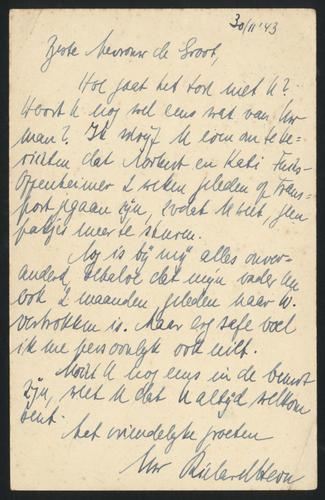 30/11 '43
Beste Mevrouw de Groot,
Hoe gaat het toch met U?
Hoort U nog wel eens wat van Uw
man? Ik schrijf U even om te be-
richten dat Norbert en Kati Fuchs-
Oppenheimer 2 weken geleden op Trans-
port gegaan zijn, zodat U weet, geen
pakjes meer te sturen.
Nog is bij mij alles onver-
anderd, behalve dat mijn vader
ook 2 maanden geleden naar W.
vertrokken is. Maar erg safe voel
ik me persoonlijk ook niet.
Mocht U nog eens in de buurt
zijn, weet U dat U altijd welkom
bent.
Met vriendelijke groeten
Uw